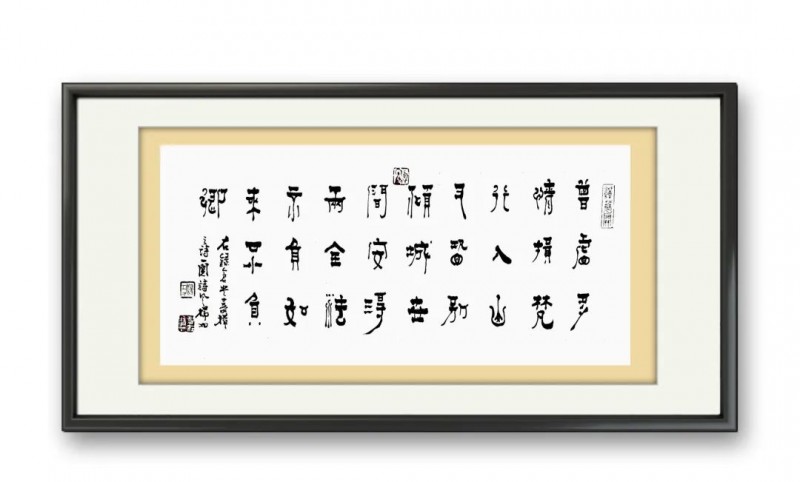 曾慮多
情損梵
行入山
又恐別
傾城世
間安得
兩全法
不負如
来不負
卿
右錄倉央嘉措
之詩